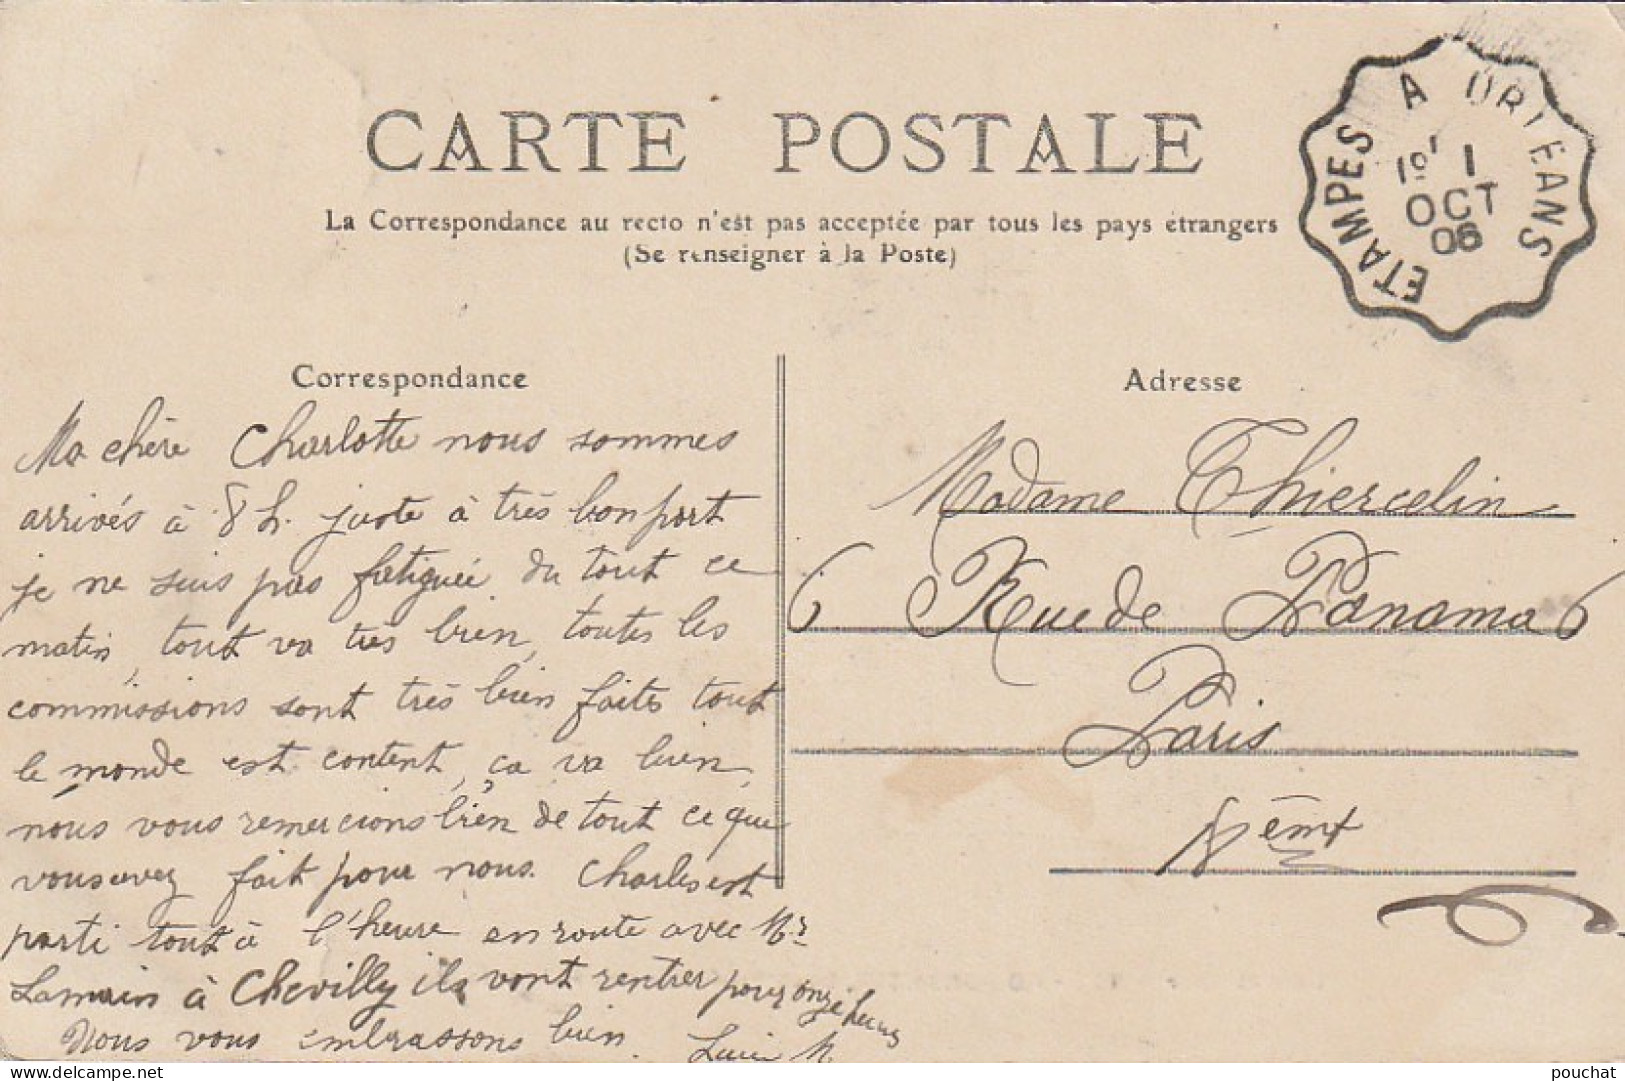 CARTE POSTALE
La Correspondance au recto n'est pas acceptée par tous les pays étrangers
(Se renseigner à la Poste)
ETAMPES A ORLEANS
1
OCT
06
Correspondance
Ma chère Charlotte nous sommes
arrivés à 8 h. juste à très bon port
je ne suis pas fatiguée du tout ce
matin, tout va très bien, toutes les
commissions sont très bien faites tout
le monde est content, ça va bien,
nous vous remercions bien de tout ce que
vous avez fait pour nous. Charles est
parti tout à l'heure en route avec Mr
Lamain à Chevilly ils vont rentrer pour onze heures
Nous vous embrassons bien.
Adresse
Madame Thiercelin
6 Rue de Panama 6
Paris
6
pouchat